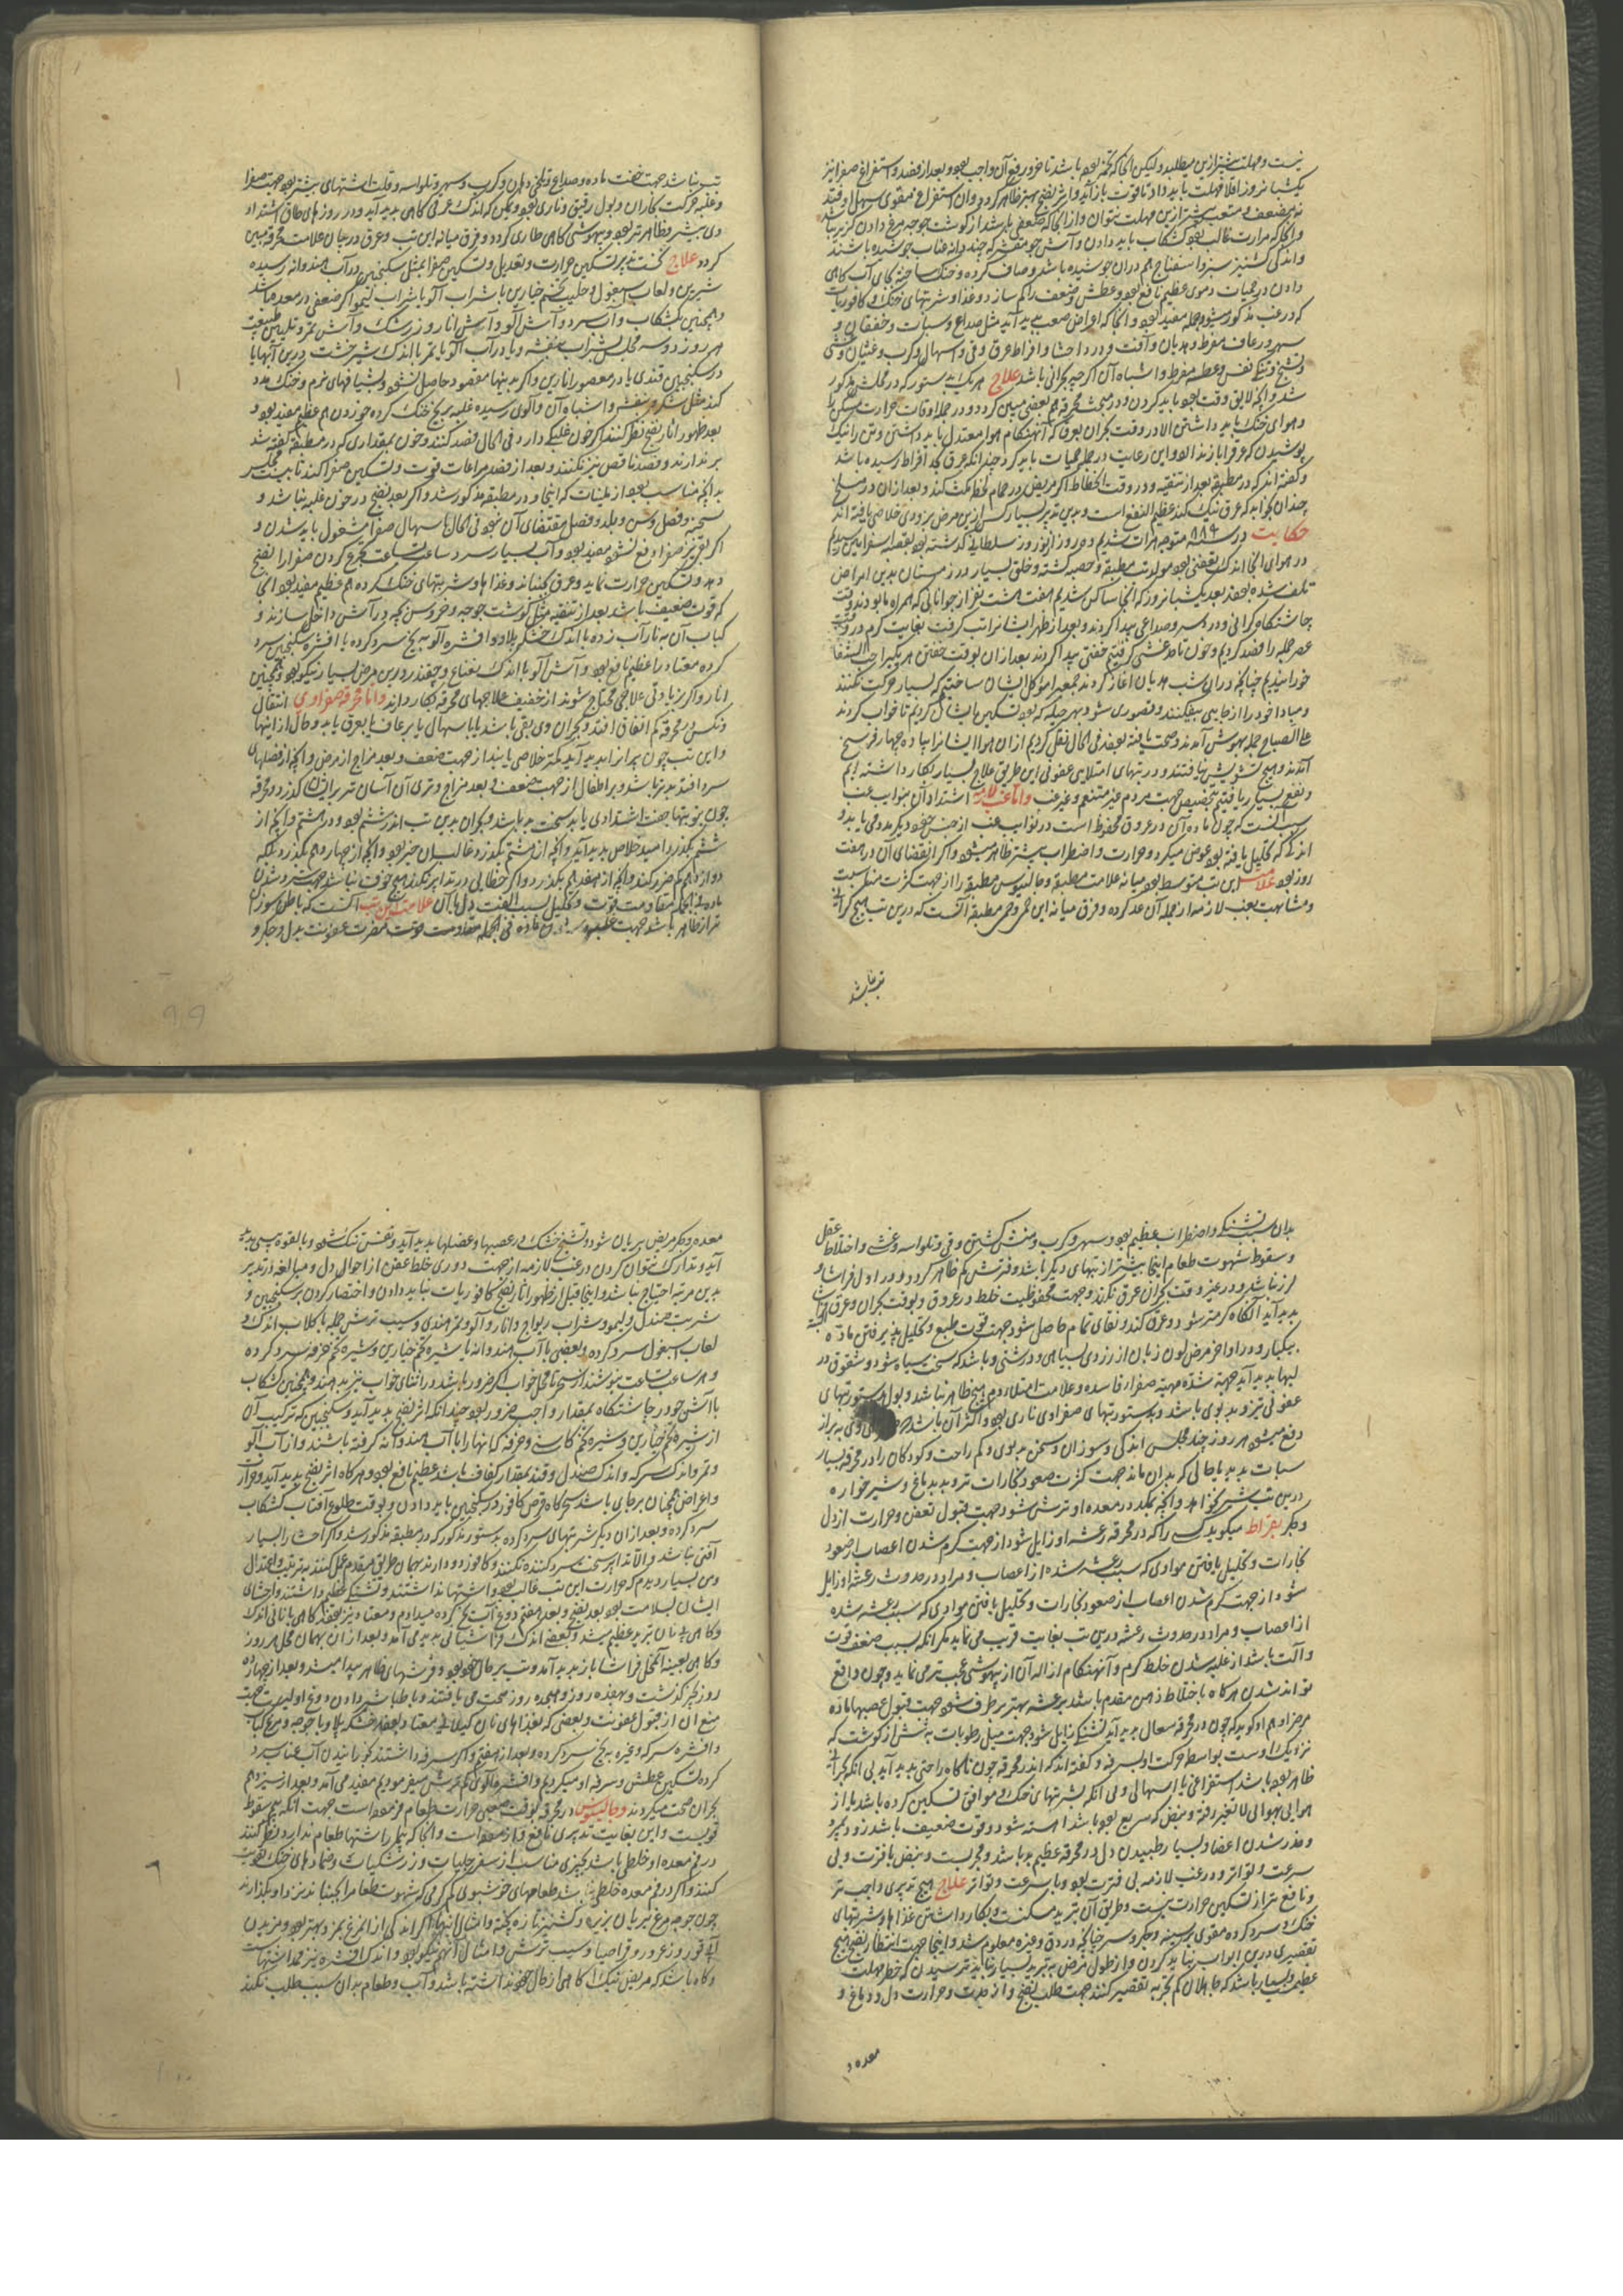 نیست و مهلت بیشتر ازین میطلبد ولیکن آنجا که تخمه بود باشد تا ضرور رفع آن واجب بود و بعد از فصد و استفراغ صفرا نیز
یکشبانروز اقلا مهلت باید داد تا قوت باز آید و اثر نضج بهتر ظاهر کردد و آن استفراغ مقوی سهل اوفتد
نه مضعف و متعب بیشتر ازین مهلت نتوان داد و آنجا که ضعفی باشد از کوشت جوجه مرغ دادن کزیر نباشد
و آنجا که حرارت غالب بود کشکاب باید دادن و آش جو مقشر که چند دانه عناب جوشیده باشند
و اندکی کشنیز سبز و اسفناج هم دران جوشیده باشد و صاف کرده و خنک ساخته بجای آب کاهی
دادن در حمیات دموی عظیم نافع بود و عطش و ضعف را کم سازد و غذا و شربتهای خنک و کافوریات
که در غب مذکور میشود جمله مفید بود و آنجا که اعراض صعب پدید آید مثل صداع و سبات و خفقان و
سهر و رعاف مفرط و هذیان و آفت و درد احشا و افراط عرق و قی و اسهال و کرب و غثیان و غشی
و تشنج و تنک نفس و عطسه مفرط و اشباه آن اکرچه بحرانی باشد علاج هر یک بدستور که در محلش مذکور
شد و آنچه لایق وقت بود باید کردن و در مبحث محرقه هم بعضی مبین کردد و در جمله اوقات حرارت مسکن را
و هوای خنک باید داشتن الا در وقت بحران بعرق که آنهنکام هوا معتدل باید داشتن و تن را نیک
پوشیدن که عرق را باز ندارد و این رعایت در جمله حمیات باید کرد چندانکه عرق بحد افراط رسیده باشد
و کفته اند که در مطبقه بعد از تنقیه و در وقت انحطاط اکر مریض در حمام لحظه مکث کند و بعد از آن در مسلخ
چندان بخوابد که عرق نیک کند عظیم النفع است و بدین تدبیر بسیار کس ازین مرض بزودی خلاصی یافته اند
حکایت در ۸۸۹ متوجه هرات شدیم و در روز از نوروز سلطانی کذشته بود بقصبه اسفراین رسیدیم
در هوای آنجا اندک تعفنی بود مولد تب مطبقه و حصبه کشته و خلق بسیار در زمستان بدین امراض
تلف شده بودند بعد یکشبانروز که آنجا ساکن شدیم هفت هشت نفر از جوانانی که همراه ما بودند وقت
چاشتکاه کرانی و درد سر و صداعی پیدا کردند و بعد از ظهر ایشانرا تب کرفت بغایت کرم در وقت
عصر جمله را فصد کردیم و خون تا حد غشی کرفتیم خفتی پیدا کردند بعد از آن بوقت خفتن هر یک را حب الشفا
خورانیدیم چنانچه در آن شب هذیان آغاز کردند جمعی را موکل ایشان ساختیم که بسیار حرکت نکنند
و مبادا خود را از جایی بیفکنند و قصوری شود بهر حیله که بود تسکین ایشان کردیم تا خواب کردند
علی الصباح جمله بهوش آمدند و صحت یافته بودند فی الحال نقل کردیم از آن هوا ایشانرا پیاده چهار فرسخ
آمدند و هیچ تشویش نیافتند و در تبهای امتلایی عفونی این طریق علاج بسیار بکار داشته ایم
و نفع بسیار یافتیم بتخصیص جهت مردم غیر متنعم و غیر غب واما غب لازمه اشتداد آن بنوایب غب
سبب آنست که چون ماده آن در عروق محفوظ است در نوایب غب از جنس خود دیکر مددی می یابد و
اندکی که تحلیل یافته بود عوض میکیرد و حرارت و اضطراب بیشتر ظاهر میشود و اکثر انقضای آن در هفت
روز بود علامت این تب متوسط بود میانه علامت مطبقه و جالینوس مطبقه را از جهت کثرت مناسبت
و مشابهت بغب لازمه از جمله آن عد کرده و فرق میانه این حمی و حمی مطبقه آنست که درین تب هیچ کرانی
تن نباشد

تب نباشد جهت خفت ماده و صداع و تلخی دهان و کرب و سهر و تلواسه و قلت اشتهای بیشتر بود جهت صفرا
و غلبه حرکت بخاران و بول رقیق و ناری بود و ممکن که اندک عرقی کاهی پدید آید و در روزهای طاق اشتداد
وی بیشتر و ظاهرتر بود و بیهوشی کاهی طاری کردد و فرق میانه این تب و غرق در بیان علامت محرقه مبین
کردد علاج نخست تدبیر تسکین حرارت و تعدیل و تسکین صفرا بمثل سکنجبین در آب هندوانه رسیده
شیرین و لعاب اسبغول و حلیب تخم خیارین با شراب آلو یا شراب لیمو اکر ضعفی در معده باشد
و همچنین کشکاب و آب سرد و آش آلو و آش انار و زرشک و آش تمر و تلیین طبیعت
هر روز دو سه مجلس بشراب بنفشه و یا در آب آلو یا تمر با اندک شیرخشت و درین آبها یا
در سکنجبین قندی یا در معصور انارین و اکر بدینها مقصود حاصل نشود و بشیافهای نرم و خنک مدد
کنند مثل شکر و بنفش و اشباه آن و آلوی رسیده غلبه بر یخ خنک کرده خوردن هم عظیم مفید بود و
بعد ظهور آثار نضج نظر کنند اکر خون غلبکی دارد فی الحال فصد کنند و خون بمقداری که در مطبقه کفته شد
بر ندارند و فصد ناقص نیز نکنند و بعد از فصد مراعات قوت و تسکین صفرا کنند تا بیست
بدانچه مناسب بود از ملینات که اینجا و در مطبقه مذکور شد و اکر بعد نضج در خون غلبه نباشد و
سحنه و فصل و سن و بلد و فصل مقتضای آن نبود فی الحال باسهال صفرا مشغول باید شدن و
اکر بقی نیز صفرا دفع نشود مفید بود و آب بسیار سرد ساعت بساعت تجرع کردن صفرا را نضج
دهد و تسکین حرارت نماید و عرق بجنباند و غذاها و شربتهای خنک کرده هم عظیم مفید بود آنجا
که قوت ضعیف باشد بعد از تنقیه مثل کوشت جوجه و خروس بچه در آش داخل سازند و
کباب آن به نار آب زده با اندک خشکه پلاو و افشره آلو به یخ سرد کرده با افشره سکنجبین سرد
کرده معتاد را عظیم نافع بود و آش آلو با اندک نعناع و چغندر درین مرض بسیار نیکو بود و همچنین
انار و اکر بزیادتی علاجی محتاج شوند از خفیف علاجهای محرقه بکار دارند واما محرقه صفراوی انتقال
و نکس در محرقه کم اتفاق افتد و بحران وی بقی باشد یا باسهال یا برعاف یا بعرق یا بدو حال از اینها
و این تب چون پیرانرا پدید آید کمتر خلاصی یابند از جهت ضعف و بعد مزاج از مرض و آنچه از فصلهای
سرد افتد بدتر باشد و بر اطفال از جهت ضعف و بعد مزاج و تری آن آسان تر بر ایشان کذرد و محرقه
چون بنوبتها جفت اشتدادی یابد سخت بد باشد و بحران بدین تب اندر ششم بود و در هشتم و آنچه از
ششم بکذرد امید خلاص پدید آید و آنچه از هشتم بکذرد غالب آن خیر بود و آنچه از چهاردهم بکذرد بلکه
دوازدهم کم ضرر کند و آنچه از هفدهم بکذرد و اکر خطایی در تدابیر نکنند هیچ خوف نباشد جهت سرد شدن
ماده فی الجمله مقاومت قوت و تحلیل بسبب الفت دلها آن علامت این تب آنست که باطن سوزان
تر از ظاهر باشد جهت غلبه ماده فی الجمله مقاومت قوت مضرت عفونت بدل و جکر و

بدان سبب تشنکی و اضطراب عظیم بود و سهر و کرب و منش کشتن و قی و تلواسه و غشی و اختلاط عقل
و سقوط شهوت طعام اینجا بیشتر از تبهای دیکر باشد و فترتش کم ظاهر کردد و در اول فراشا و
لرز نباشد و در غیر وقت بحران عرق نکند و جهت محفوظیت خلط در عروق و بوقت بحران و عرق
پدید آید آنکاه کرمتر شود و عرق کند و نقای تمام حاصل شود جهت قوت طبع و تحلیل پذیر رفتن ماده
بیکبار و در اواخر مرض لون زبان از زردی بسیاهی و درشتی و باشد که سخت سیاه شود و شقوق در
لبها پدید آید جهت شده مهیته صفرا فاسده و علامت امتلا دم هیچ ظاهر نباشد و بول بدستور تبهای
عفونی تیز و بدبوی باشد و بدستور تبهای صفراوی ناری بود و اکثر آن باشد وی به براز
دفع میشود هر روز چند مجلس اندکی و سوزان و سخن بدبوی و کم راحت و کودکان را در محرقه بسیار
سبات پدید یا حالی که بدان ماند جهت کثرت صعود بخارات تر و بد بدماغ و شیرخواره
درین تب شیر نخواهد و آنچه بمکد در معده او ترش شود جهت قبول تعفن و حرارت از دل
و جکر بقراط میکوید کسی را که در محرقه رعشه او زایل شود از جهت کرم شدن اعصاب از صعود
بخارات و تحلیل یافتن موادی که سبب رعشه شده از اعصاب و مراد در حدوث رعشه او زایل
شود از جهت کرم شدن اعصاب از صعود بخارات و تحلیل یافتن موادی که سبب رعشه شده
از اعصاب و مراد در حدوث رعشه درین تب بغایت قریب می نماید مکر آنکه بسبب ضعف قوت
و آلت باشد از غلبه شدن خلط کرم و آنهنکام ازاله آن از بیهوشی عجب تر می نماید و چون واقع
تواند شدن هرکاه با اختلاط ذهن مقدم باشد برعشه بهتر برطرف شود جهت قبول عصبها ماده
مرض را و هم او کوید که چون در محرقه سعال پدید آید تشنکی زایل شود جهت میل رطوبات به شش از کوشت که
نزدیک اوست بواسطه حرکت او بسرفه و کفته اند که اندر محرقه چون ناکاه راحتی پدید آید بی آنکه بحرانی
ظاهر بود باشد استفراغی یا اسهالی و بی آنکه بشربتهای خنک و موافق تسکین کرده باشد یا از
هوایی بهوایی لا تغیر رفته و نبض که سریع بود باشد آهسته شود و قوت ضعیف باشد زود بمیرد
و خدر شدن اعضا و بسیار طپیدن دل در محرقه عظیم بد باشد و مجربست و نبض با فترت و بی
سرعت و تواتر و در غب لازمه بی فترت بود و با سرعت و تواتر علاج هیچ تدبیری واجب تر
و نافع تر از تسکین حرارت نیست و طریق آن تبرید مسکنست و بکار داشتن غذاها و شربتهای
خنک و سرد کرده مقوی بر سینه و جکر و سر چنانچه در دق و غیره معلوم شد و اینجا جهت انتظار نضج هیچ
تقصیری درین ابواب نباید کردن و از طول مرض به تبرید بسیار نباید ترسیدن که خطر مهلت
عظیم و بسیار باشد که جاهلان کم تجربه تقصیر کنند جهت طلب نضج و از حدت و حرارت دل و دماغ و
معده و

معده و جکر مریض بریان شود و تشنج خشک در عصبها و عضلها پدید آید و نفس تنک شود و با لقوه سبب پدید
آید و تدارک نتوان کردن در غب لازمه از جهت دوری خلط عفن از احوال دل و مبالغه در تدبیر
بدین مرتبه احتیاج نباشد و اینجا قبل از ظهور آثار نضج کافوریات نباید دادن و اختصار کردن بر سکنجبین و
شربت صندل و لیمو و شراب ریواج و انار و آلو و تمر هندی و سیب ترش جمله با کلاب اندک و
لعاب اسبغول سرد کرده بعضی با آب هندوانه یا شیره تخم خیارین و شیره تخم خرفه سرد کرده
و هر ساعت بساعت بنوشند از سحر تا محل خواب اکر ضرور باشد در اثنای خواب نیز بدهند و همچنین کشکاب
با آش جو در چاشتکاه بمقدار واجب ضرور بود چندانکه اثر نضج پدید آید و سکنجبین که ترکیب آن
از شیره تخم خیارین و شیره تخم کاسنی و خرفه که اینها را با آب هندوانه کرفته باشند و از آب آلو
و تمر و اندک سرکه و اندک صندل و قند بمقدار کفاف باشد عظیم نافع بود و هرکاه اثر نضج پدید آید و حرارت
و اعراض همچنان برجای باشد سحرکاه قرص کافور در سکنجبین باید دادن و بوقت طلوع آفتاب کشکاب
سرد کرده و بعد از آن دیکر شربتهای سرد کرده بدستور مذکور که در مطبقه مذکور شد و اکر احشا را بسیار
آفتی نباشد و الا تدابیر سخت سرد کننده نکنند و کافور دور دارند و همان طریق مقدم عمل کنند به ترتیب و اعتدال
و من بسیار دیدم که حرارت این تب غالب بود و اشتها نداشتند و تشنکی عظیم داشتند و احشای
ایشان بسلامت بود بعد نضج و بعد هفتم دوغ آب یخ کرده میدادم و معتاد نیز بودند کاهی با نانی اندک
و کاهی بی نان تبرید عظیم میشد و بعضی اندک فراشایی پدید می آمد و بعد از آن بهمان محل هر روز
و کاهی بعینه آنمحل فراشا باز پدید آمد و تب بر حال خود بود و فرشهای ظاهر پیدا میشد و بعد از چهارده
روز بخیر کذشت و بهفده روز و هجده روز صحت می یافتند و با طباشیر دادن دوغ اولیست جهت
منع آن از قبول عفونت و بعضی که بغذاهای نان کیلانی معتاد بودند خشکه پلاو با جوجه و مرغ کباب
و افشره سرکه و غیره به یخ سرد کرده و بعد از هفتم و اکر سرفه داشتند بخورانیدن آب عناب سرد
کرده تسکین عطش و سرفه او میکردیم و افشره آلوی کم ترش میفرمودیم مفید می آمد و بعد از سیزدهم
بحران صحت میکردند و جالینوس در محرقه بوقت صعبی حرارت طعام فرموده است جهت آنکه بیم سقوط
قوتست و این بغایت تدبیری نافع فرموده است و آنجا که بیمار باشتها طعام ندارد نظر کنند
در فم معده او خلطی باشد بچیزی مناسب از سفرجلیات و زرشکیات و ضمادهای خنک تقویت
کنند و اکر در فم معده خلطی نباشد طعامهای خوشبوی کم کرمی که شهوت طعام را بجنباند نزد او بکذارند
چون جوجه مرغ بریان بزیره و کشنیز تازه پخته و امثال اینها و اکر اندکی از آن مرغ بمزد بهتر بود و مزیدن
آبی قوروز عرور و قراصیا و سیب ترش و امثال آن هم نیکو بود و اندک افشره نیز محرک اشتهاست
و کاه باشد که مریض نیک آکاهی از حال خود نداشته باشد و آب و طعام بدان سبب طلب نکند